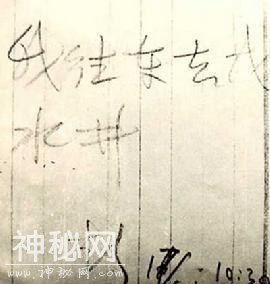 我往东去找
水井
10:30
神秘网
www.神秘网.com